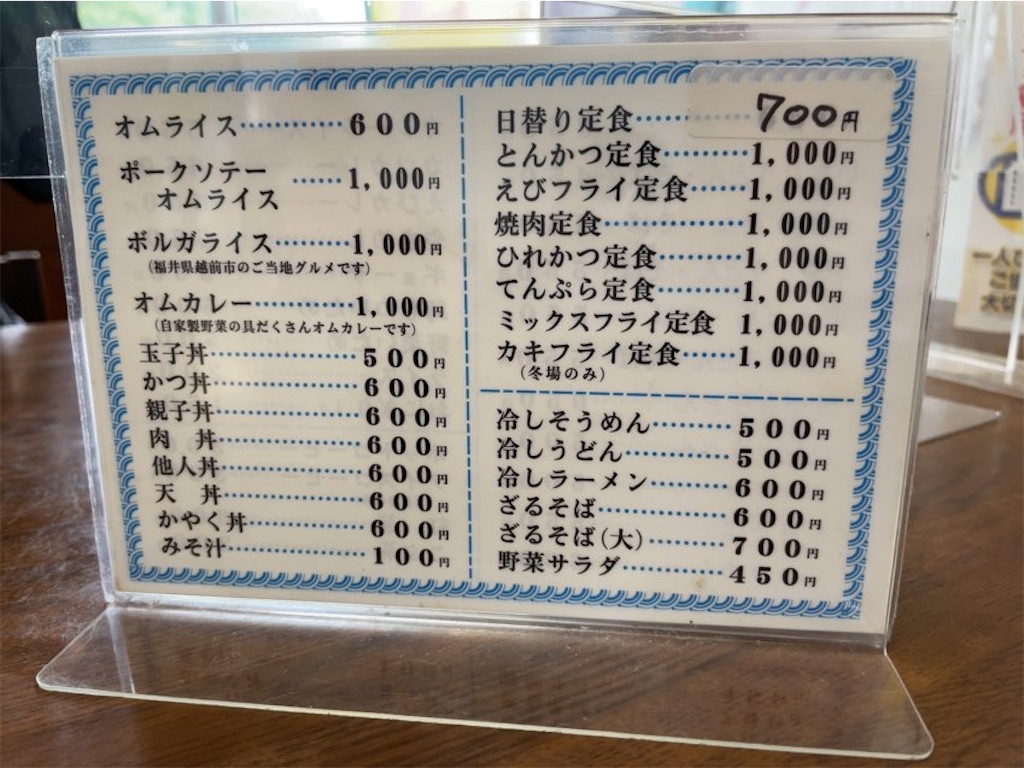 オムライス………600円
ポークソテー
オムライス……1,000円
ボルガライス………1,000円
(福井県越前市のご当地グルメです)
オムカレー………1,000円
(自家製野菜の具だくさんオムカレーです)
玉子丼………500円
かつ丼………600円
親子丼………600円
肉　丼………600円
他人丼………600円
天　丼………600円
かやく丼………600円
みそ汁………100円
日替り定食………700円
とんかつ定食………1,000円
えびフライ定食……1,000円
焼肉定食………1,000円
ひれかつ定食………1,000円
てんぷら定食………1,000円
ミックスフライ定食 1,000円
カキフライ定食……1,000円
(冬場のみ)
冷しそうめん………500円
冷しうどん………500円
冷しラーメン………600円
ざるそば………600円
ざるそば(大)………700円
野菜サラダ………450円